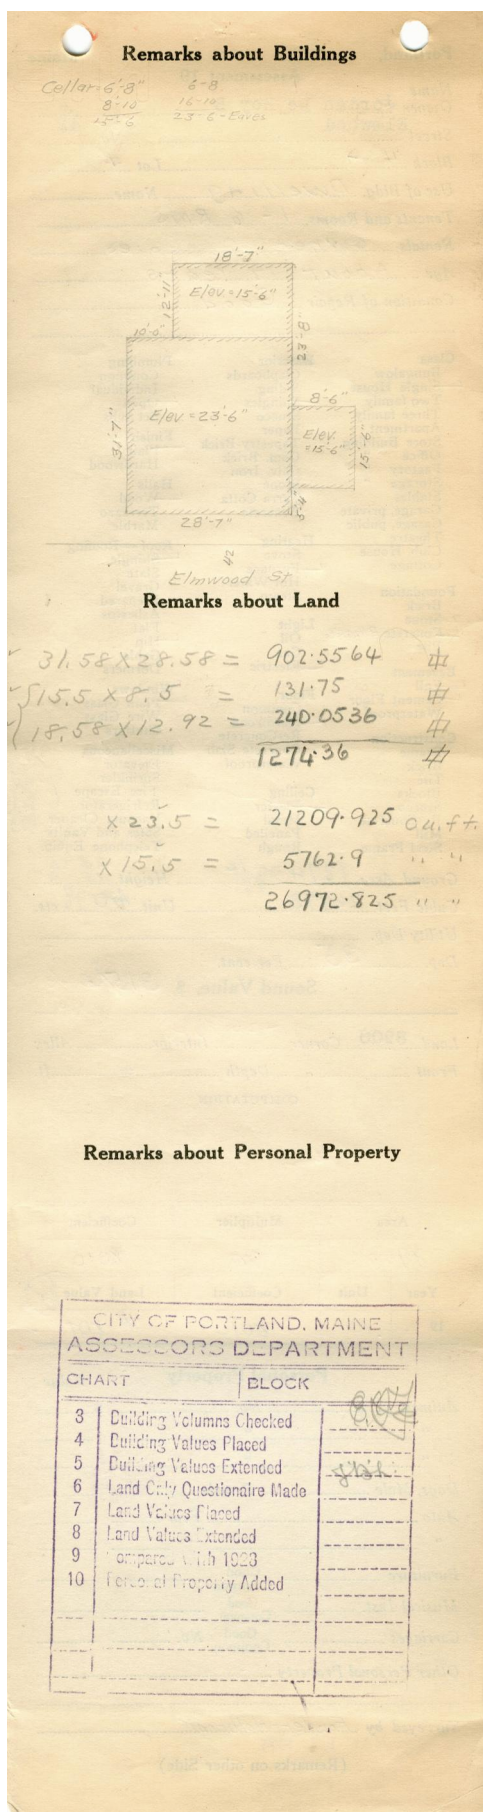 Remarks about Buildings
Cellar=6'-8" 6-8
8-10 16-10
15-6 23-6-Eaves
18'-7"
12'-11" Elev=15'-6"
10'-0" 23'-8"
8'-6"
31'-7" Elev=23'-6" Elev. =15'-6" 15'-6"
5'-4"
28'-7"
42
Elmwood St
Remarks about Land
31.58 X 28.58 = 902.5564
15.5 X 8.5 = 131.75
18.58 X 12.92 = 240.0536
1274.36
X 23.5 = 21209.925 cu.ft.
X 15.5 = 5762.9 " "
26972.825 " "
Remarks about Personal Property
CITY OF PORTLAND, MAINE
ASSESSORS DEPARTMENT
CHART BLOCK
3 Building Volumns Checked
4 Building Values Placed
5 Building Values Extended
6 Land Only Questionaire Made
7 Land Values Placed
8 Land Values Extended
9 Compared With 1923
10 Personal Property Added